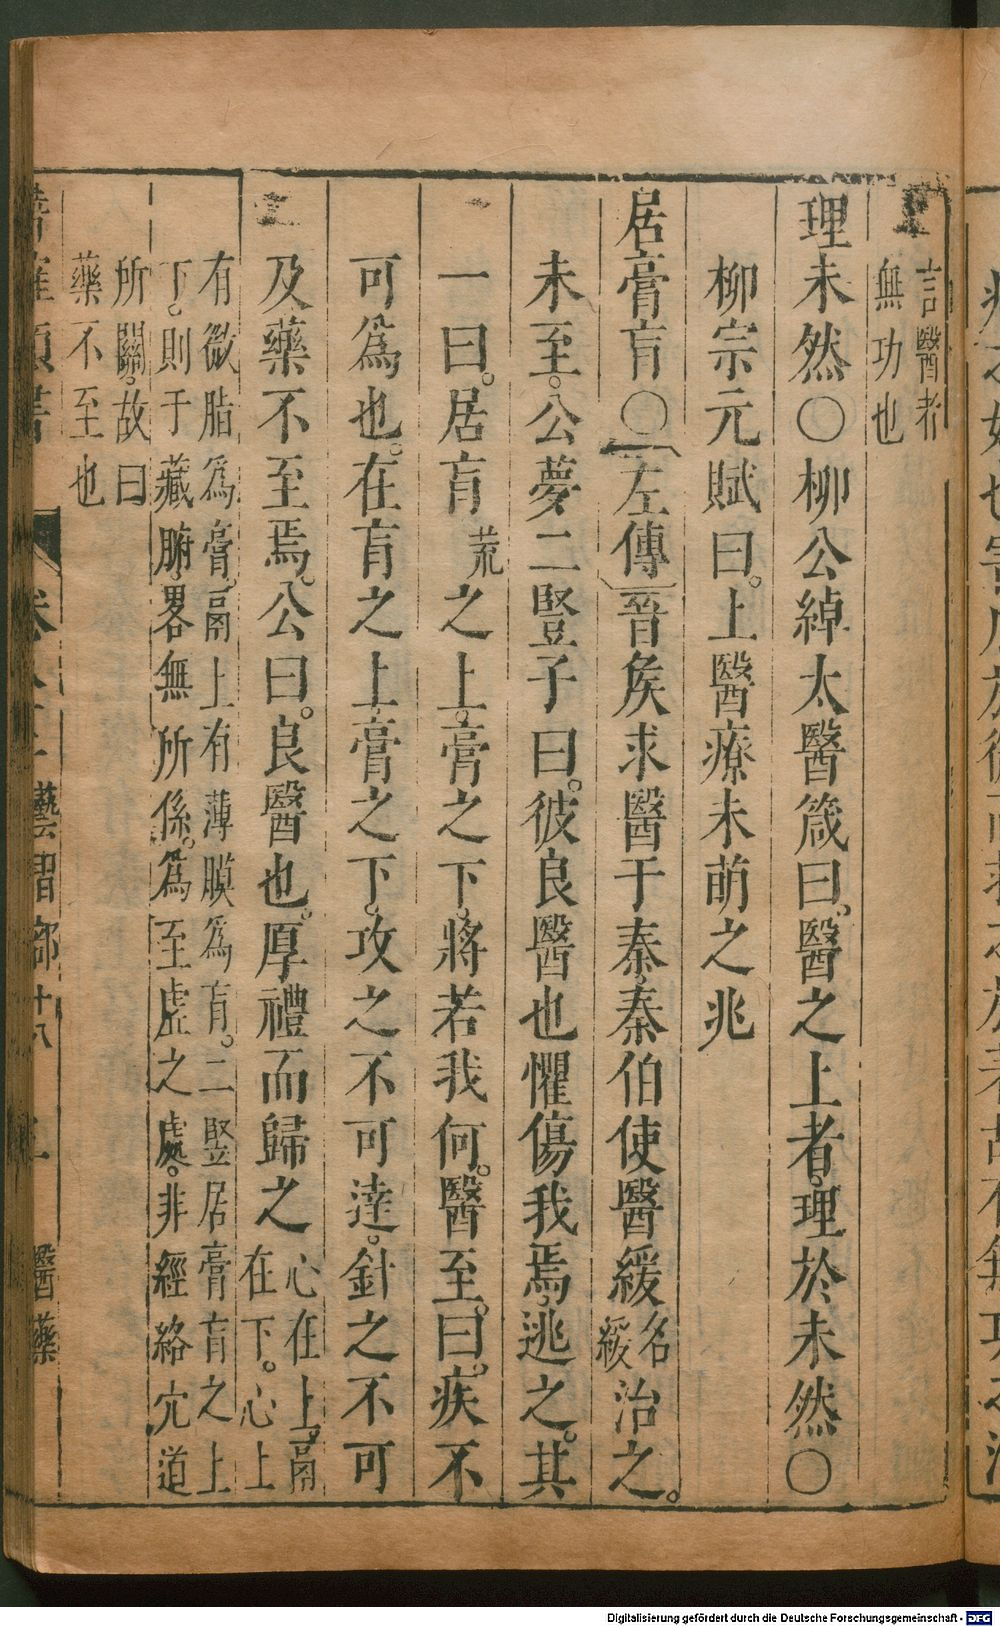 言醫者
無功也
理未然○柳公綽太醫箴曰。醫之上者。理於未然○
柳宗元賦曰。上醫療未萌之兆
居膏肓○左傳晉矦求醫于秦。秦伯使醫緩名緩治之。
未至。公夢二豎子曰。彼良醫也懼傷我焉。逃之。其
一曰。居肓荒之上。膏之下。將若我何。醫至。曰。疾不
可爲也。在肓之上膏之下。攻之不可達。針之不可
及藥不至焉。公曰。良醫也。厚禮而歸之心在上。鬲
在下。心上
有微脂爲膏。鬲上有薄膜爲肓。二竪居膏肓之上
下。則于藏腑。畧無所係。爲至虛之處。非經絡穴道
所關。故曰
藥不至也
類書
卷
藝習部十八
醫藥
Digitalisierung gefördert durch die Deutsche Forschungsgemeinschaft - DFG